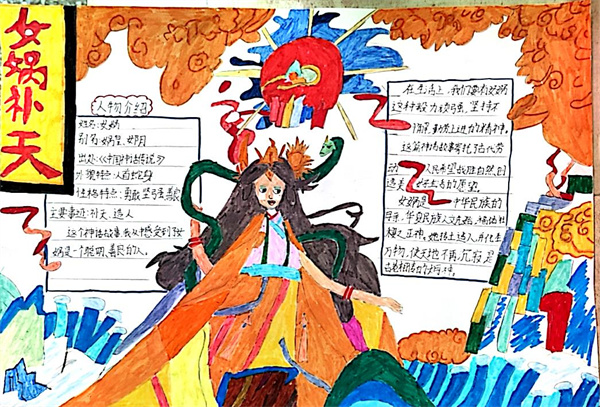 女娲补天
人物介绍
姓名:女娲
别名:娲皇、女阴
出处:《中国神话传说》
外貌特点:人面蛇身
性格特点:勇敢坚强善良
主要事迹:补天、造人
这个神话故事,我从中感受到女
娲是一个聪明、善良的人。
在生活上,我们要有女娲
这种毅力较强,坚持不
上进的精神。
这篇神话故事寄托了古代劳
动人民希望战胜自然,创
造美好生活的愿望。
女娲是中华民族的
母亲,华夏民族人文先始,福佑社
稷之正神,她抟土造人,并化生
万物,使天地不再沉寂,是